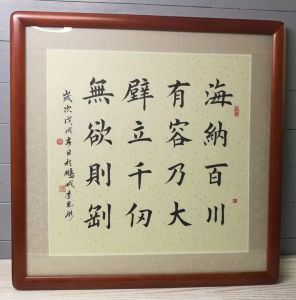 海納百川
有容乃大
壁立千仞
無欲則剛
歲次戊戌春日於鵬城